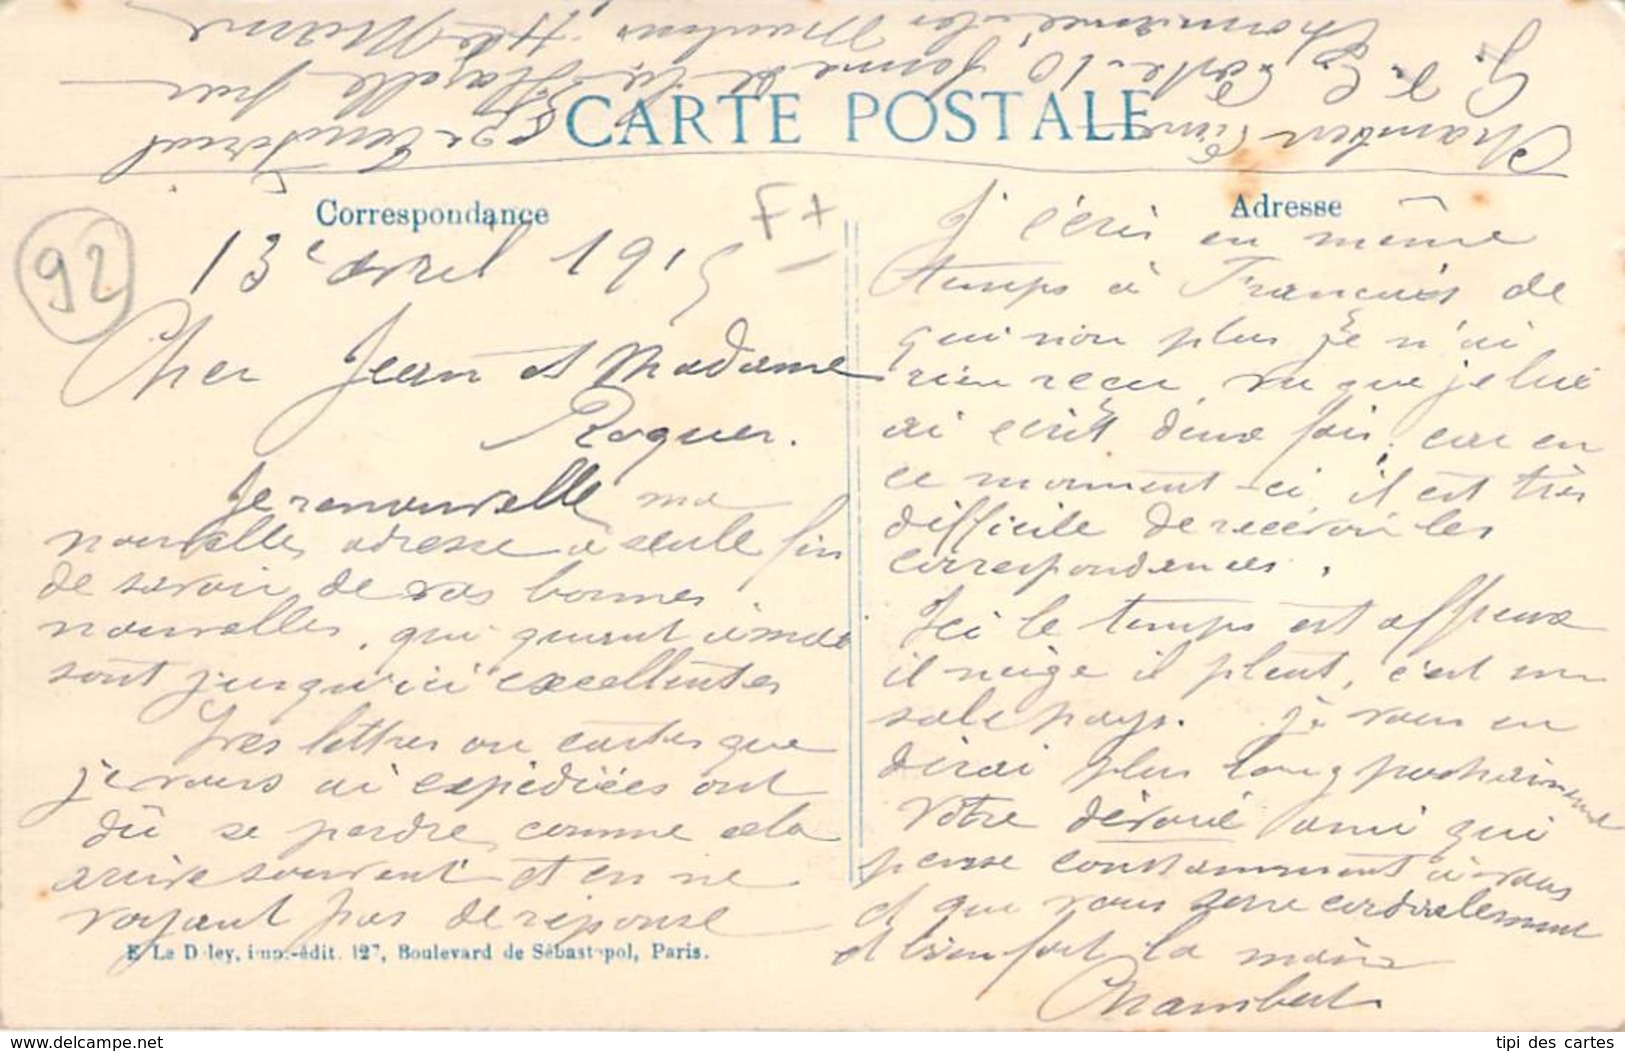 CARTE POSTALE
Correspondance
Adresse
92
F+
13e avril 1915
Cher Jean et Madame
Roques.
Je renouvelle ma
nouvelle adresse à seule fin
de savoir de vos bonnes
nouvelles, qui quant à moi
sont jusqu'ici excellentes
Les lettres ou cartes que
je vous ai expédiées ont
dû se perdre comme cela
arrive souvent et en ne
voyant pas de réponse
J'écris en même
temps à François de
qui non plus je n'ai
rien reçu, vu que je lui
ai écrit deux fois, car en
ce moment-ci il est très
difficile de recevoir les
correspondances.
Ici le temps est affreux
il neige il pleut, c'est un
sale pays. Je vous en
dirai plus long prochainement
Votre dévoué ami qui
pense constamment à vous
et que vous serre cordialement
et bien fort la main
Chambert
Chambert
G. V. C. Poste 10 ferme de la
Marne
E Le Deley, imp.-édit. 127, Boulevard de Sébastopol, Paris.
www.delcampe.net
tipi des cartes